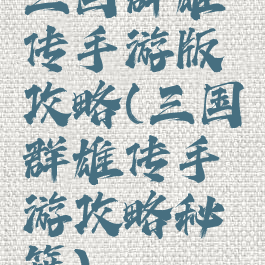 三国群雄
传手游版
攻略(三国
群雄传手
游攻略秘
籍)